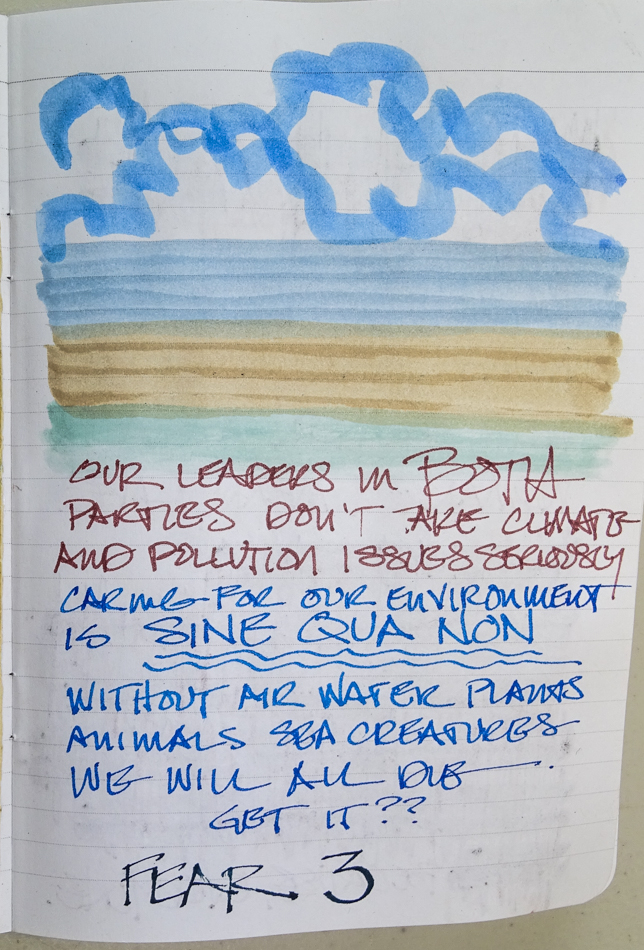 OUR LEADERS IN BOTH
PARTIES DON'T TAKE CLIMATE
AND POLLUTION ISSUES SERIOUSLY
CARING FOR OUR ENVIRONMENT
IS SINE QUA NON
WITHOUT AIR WATER PLANTS
ANIMALS SEA CREATURES
WE WILL ALL DIE.
GET IT??
FEAR 3